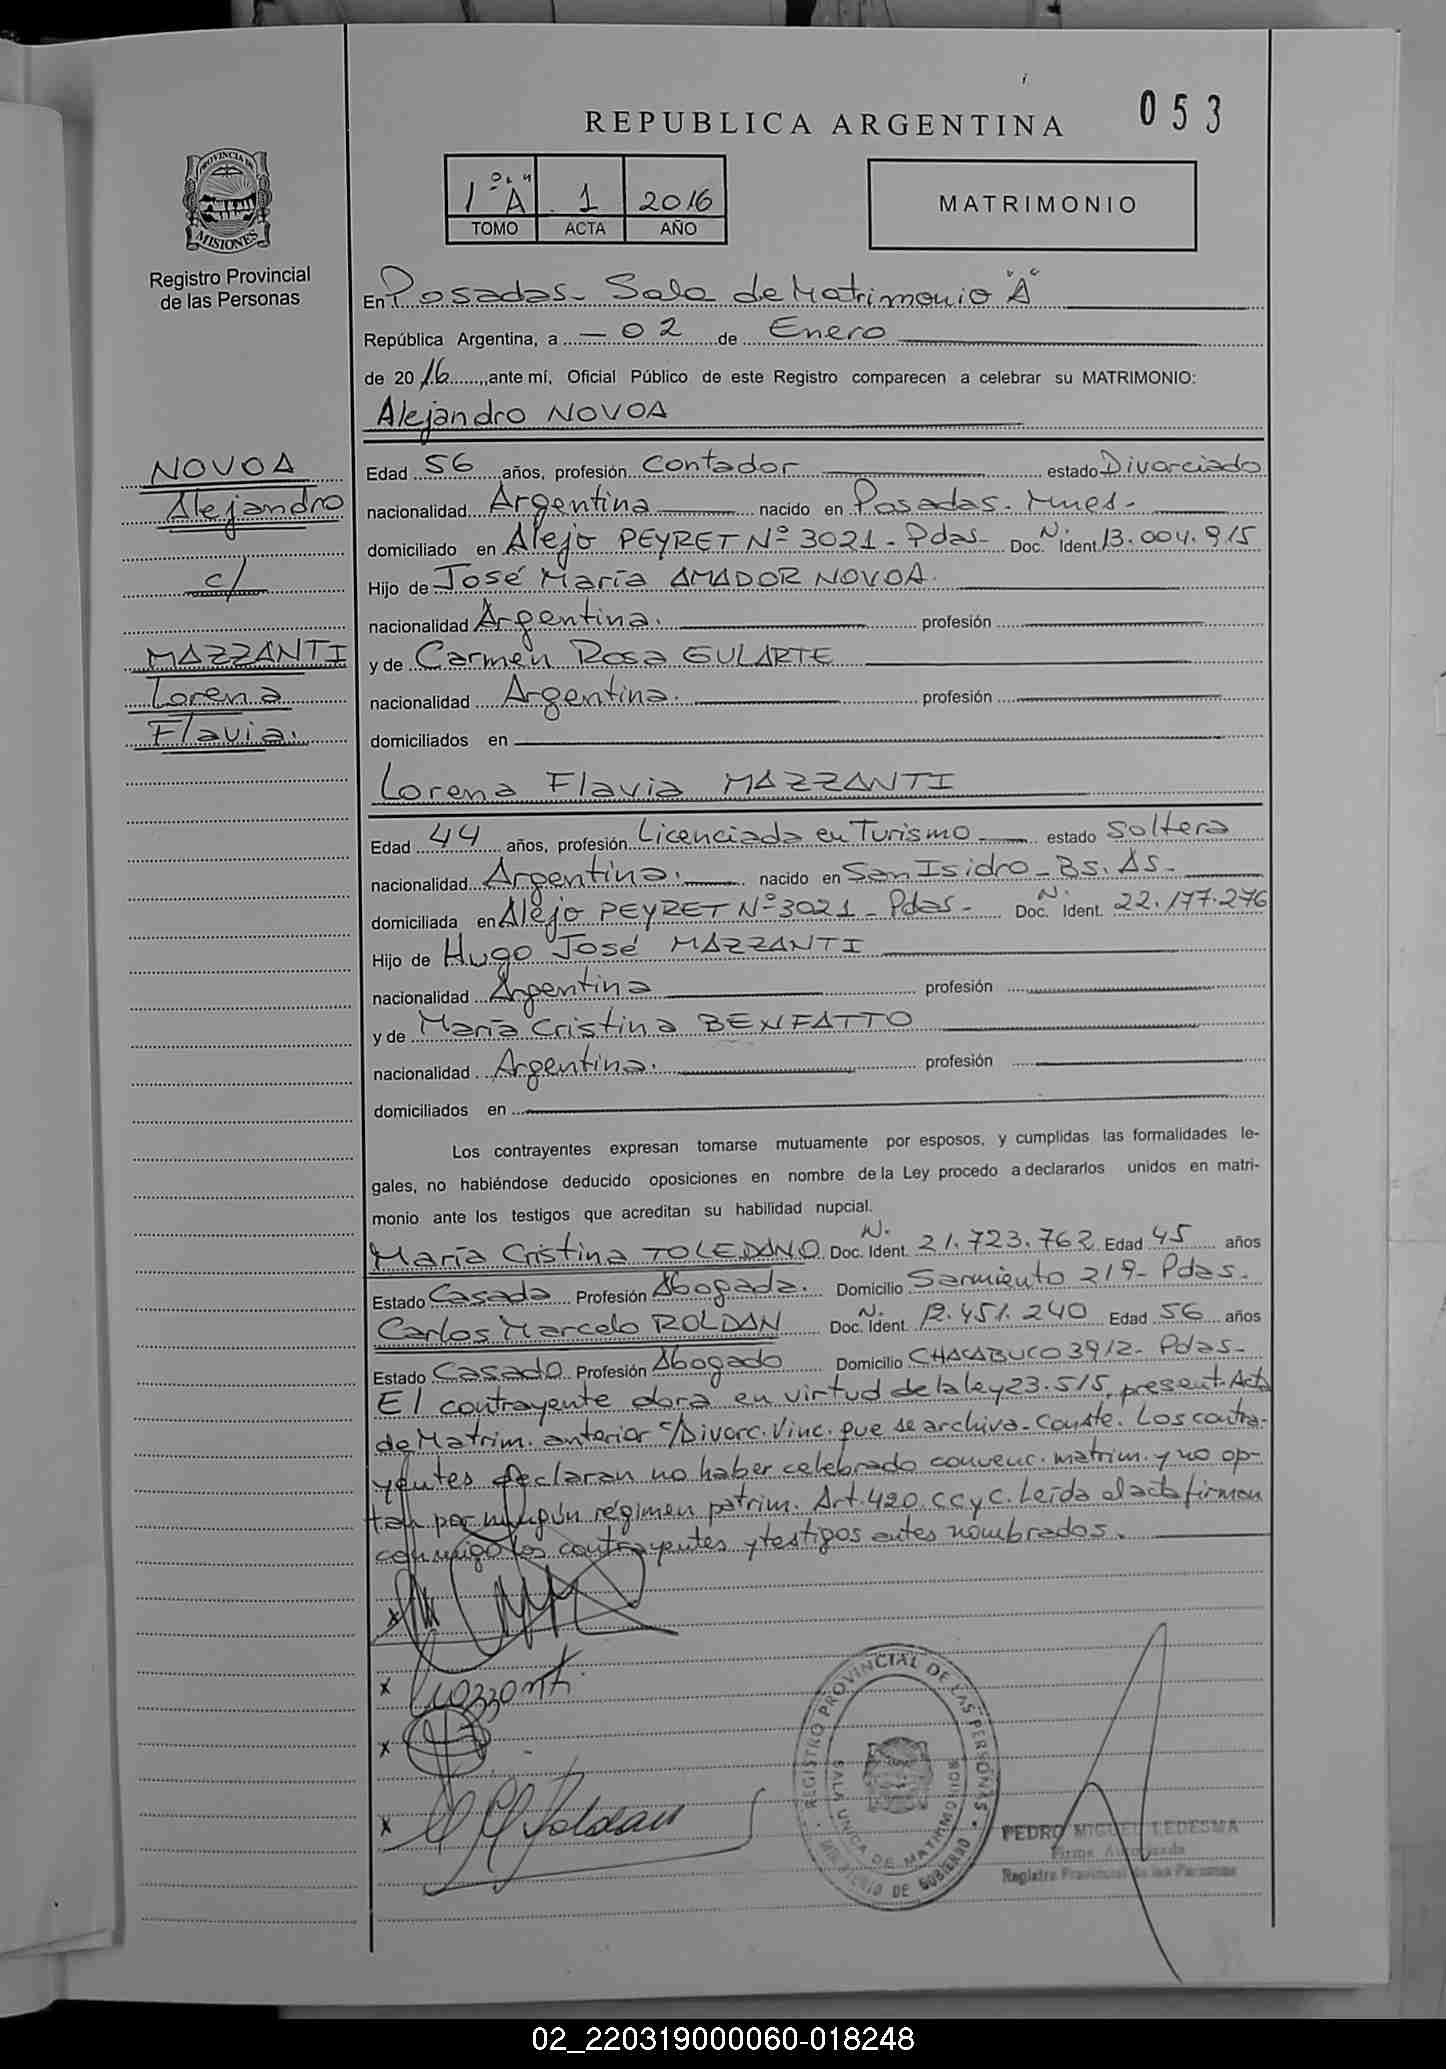 053
REPUBLICA ARGENTINA
PROVINCIA DE
MISIONES
Registro Provincial
de las Personas
1º "A" 1 2016
TOMO ACTA AÑO
MATRIMONIO
En Posadas- Sala de Matrimonio "A"
República Argentina, a - 02 de Enero
de 2016, ante mí, Oficial Público de este Registro comparecen a celebrar su MATRIMONIO:
Alejandro NOVOA
NOVOA
Alejandro
c/
MAZZANTI
Lorena
Flavia.
Edad 56 años, profesión Contador estado Divorciado
nacionalidad Argentina nacido en Posadas. Mnes-
domiciliado en Alejo PEYRET Nº 3021- Pdas- Doc. N. Ident. 13.004.915
Hijo de José María AMADOR NOVOA.
nacionalidad Argentina. profesión
y de Carmen Rosa GULARTE
nacionalidad Argentina. profesión
domiciliados en
Lorena Flavia MAZZANTI
Edad 44 años, profesión Licenciada en Turismo estado Soltera
nacionalidad Argentina. nacido en San Isidro- BS. AS-
domiciliada en Alejo PEYRET Nº 3021- Pdas- Doc. N. Ident. 22.177.276
Hijo de Hugo José MAZZANTI
nacionalidad Argentina profesión
y de María Cristina BENFATTO
nacionalidad Argentina. profesión
domiciliados en
Los contrayentes expresan tomarse mutuamente por esposos, y cumplidas las formalidades le-
gales, no habiéndose deducido oposiciones en nombre de la Ley procedo a declararlos unidos en matri-
monio ante los testigos que acreditan su habilidad nupcial.
María Cristina TOLEDANO Doc. N. Ident. 21.723.762 Edad 45 años
Estado Casada Profesión Abogada. Domicilio Sarmiento 219- Pdas-
Carlos Marcelo ROLDAN Doc. N. Ident. 12.451.240 Edad 56 años
Estado Casado Profesión Abogado Domicilio CHACABUCO 3912- Pdas-
El contrayente obra en virtud de la ley 23.515, present. Acta
de Matrim. anterior c/Divorc. Vinc. que se archiva- Conste. Los contra-
yentes declaran no haber celebrado convenc. matrim. y no op-
tan por ningún régimen patrim. Art. 420 CCyC. Leída el acta firman
conmigo los contrayentes y testigos antes nombrados.
x
x Mazzanti
x
x Roldan
REGISTRO PROVINCIAL DE LAS PERSONAS
SALA UNICA DE MATRIMONIOS
MINISTERIO DE GOBIERNO
PEDRO MIGUEL LEDESMA
Firma Autorizada
Registro Provincial de las Personas
02_220319000060-018248